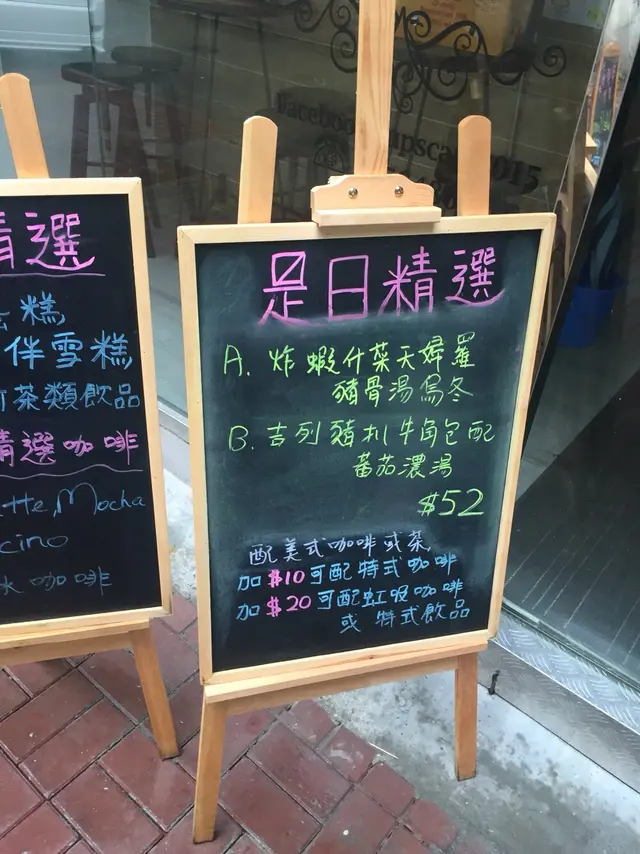 精選
糕
伴雪糕
茶類飲品
精選咖啡
Mocha
cino
咖啡
Facebook
是日精選
A. 炸蝦什菜天婦羅
豬骨湯烏冬
B. 吉列豬扒牛角包配
蕃茄濃湯
$52
配美式咖啡或茶,
加$10可配特式咖啡
加$20可配虹吸咖啡
或特式飲品